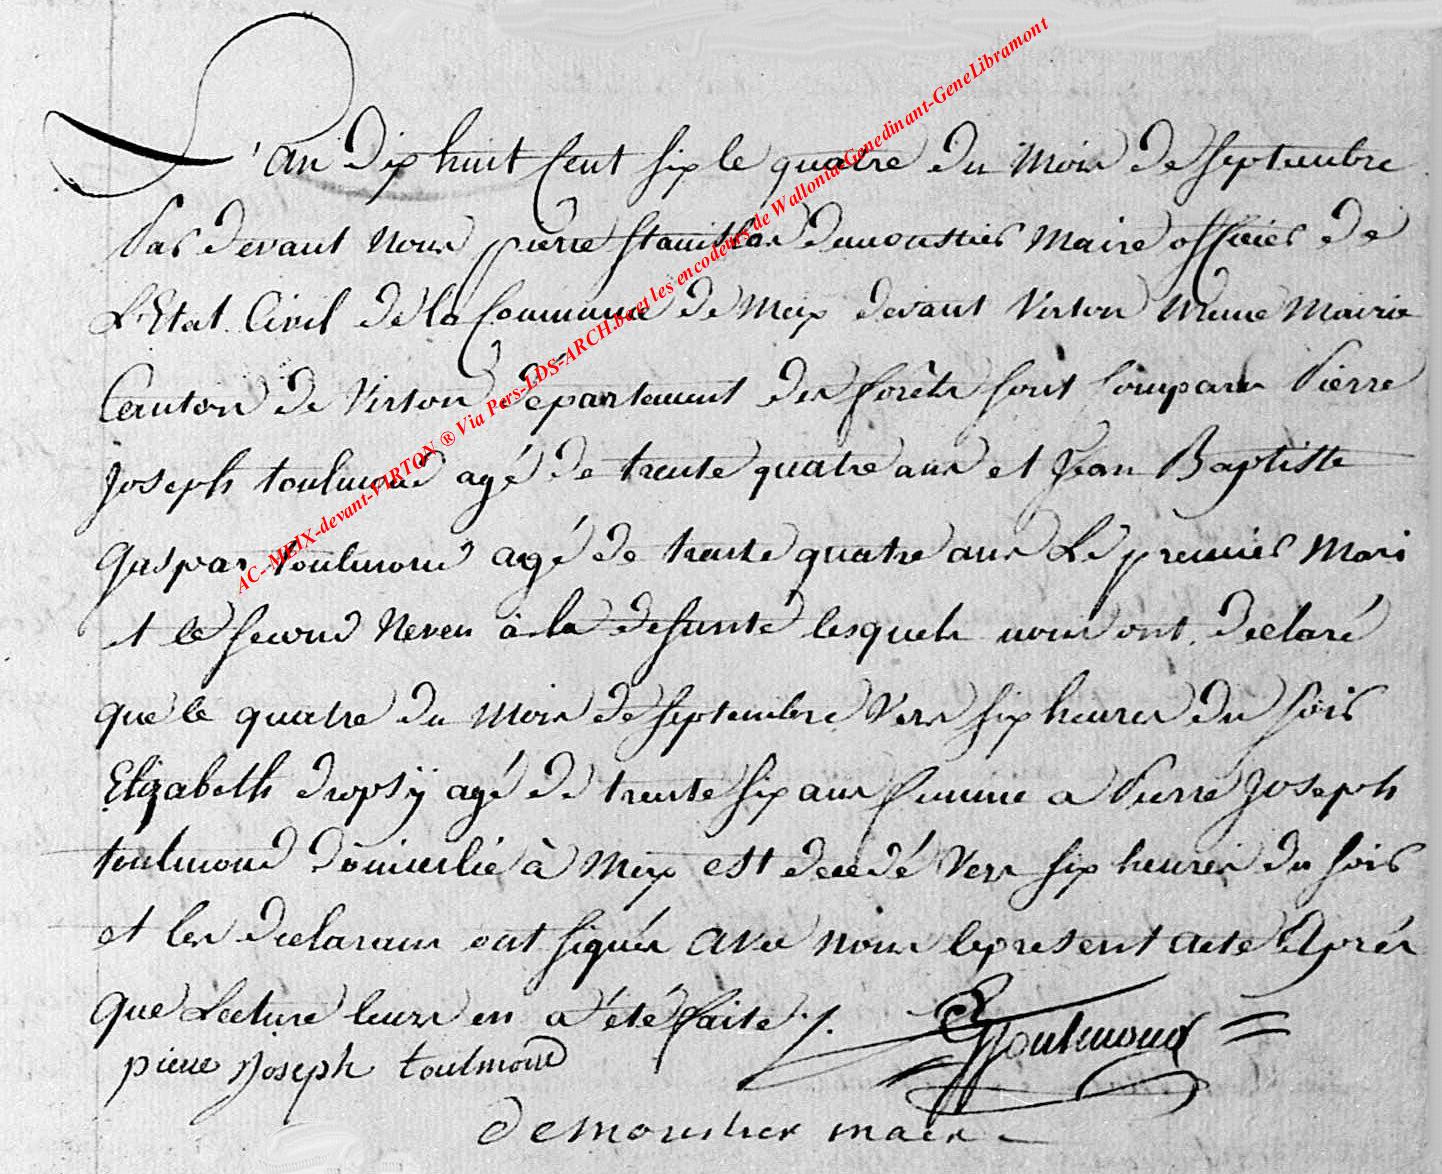 L'an dix huit Cent six le quatre du Mois de septembre
Par devant Nous pierre stanislas demoustier Maire officier de
L'Etat Civil de la Commune de Meix devant Virton Meme Mairie
Canton de Virton departement des forêts sont Comparus Pierre
Joseph toulmond agé de trente quatre ans et Jean Baptiste
Gaspar toulmond agé de trente quatre ans Le premier Mari
et le second Neveu à la defunte lesquels nous ont declaré
que le quatre du Mois de septembre Vers six heures du soir
Elizabeth dropsÿ agé de trente six ans femme a Pierre Joseph
toulmond domicilié à Meix est decedé Vers six heures du soir
et les declarans ont signés avec nous le present acte Après
que Lecture leurs en a été faite ./.
JG Toulmond
pierre Joseph toulmond
demoustier maire
AC-MEIX-devant-VIRTON ® Via Pers-LDS-ARCH.be et les encodeurs de Wallonia-Genedinant-GeneLibramont